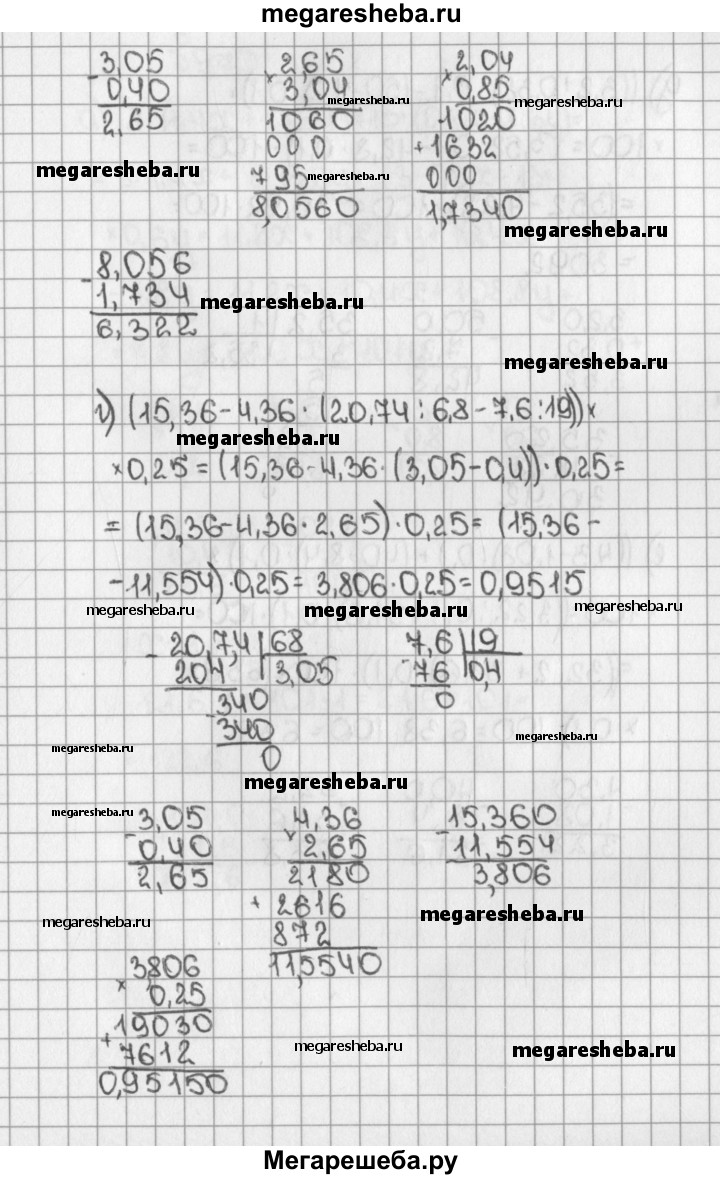 megaresheba.ru
3,05 2,65 2,04
- 0,40 × 3,04 × 0,85
megaresheba.ru megaresheba.ru
2,65 1060 1020
000 + 1632
megaresheba.ru 795 megaresheba.ru 000
8,0560 1,7340
megaresheba.ru
8,056
- 1,734 megaresheba.ru
6,322
megaresheba.ru
г) (15,36-4,36·(20,74:6,8-7,6:19))×
megaresheba.ru
×0,25=(15,36-4,36·(3,05-0,4))·0,25=
=(15,36-4,36·2,65)·0,25=(15,36-
-11,554)·0,25=3,806·0,25=0,9515
megaresheba.ru megaresheba.ru megaresheba.ru
- 20,7,4 68 7,6 19
204 3,05 - 76 0,4
340 0
- 340
megaresheba.ru 0 megaresheba.ru
megaresheba.ru
megaresheba.ru
3,05 4,36 15,360
- 0,40 × 2,65 - 11,554
2,65 2180 3,806
+ 2616
megaresheba.ru 872 megaresheba.ru
11,5540
3,806
× 0,25
19030
+ 7612 megaresheba.ru megaresheba.ru
0,95150
Мегарешеба.ру